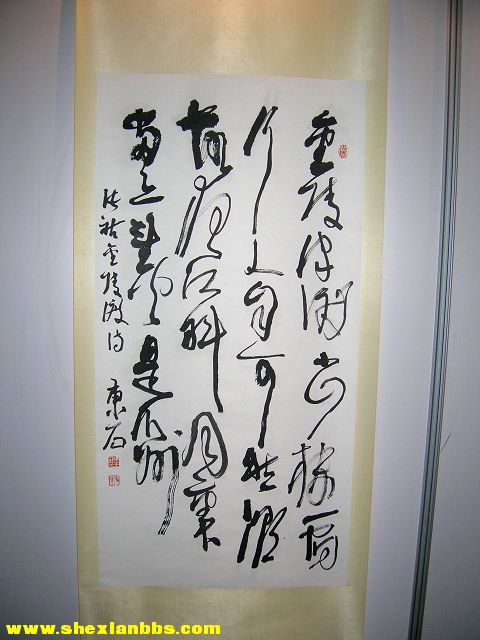 金陵津渡小山楼一宿
行人自可愁潮
落夜江斜月裏
两三星火是瓜洲
张祜金陵渡诗 康石
www.shexianbbs.com